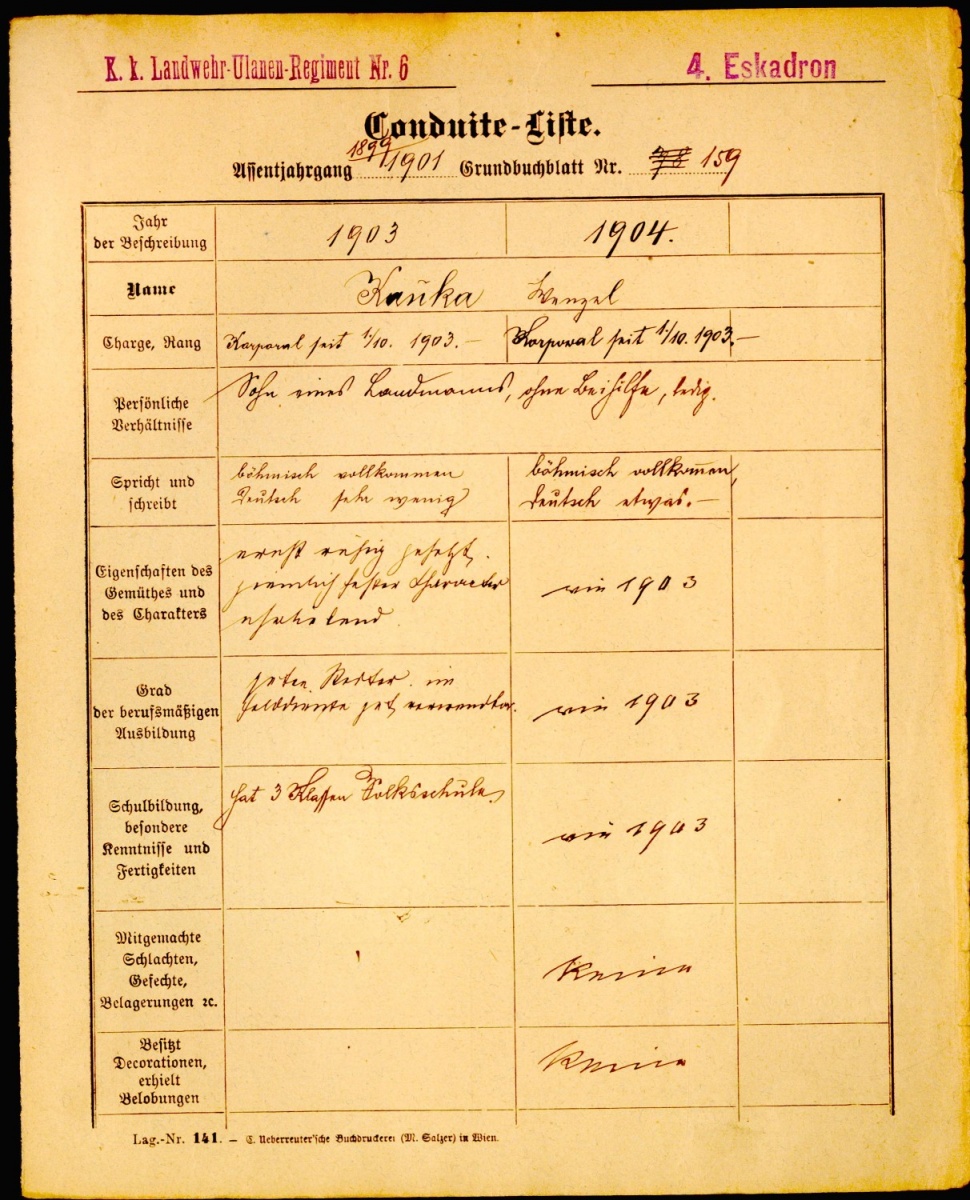 K. k. Landwehr-Ulanen-Regiment Nr. 6
4. Eskadron
Conduite-Liste.
1899
Assentjahrgang 1901 Grundbuchblatt Nr. 159
Jahr
der Beschreibung
1903
1904.
Name
Kaũka Wenzel
Charge, Rang
Korporal seit 1/10. 1903. —
Korporal seit 1/10. 1903. —
Persönliche
Verhältnisse
Sohn eines Landmanns, ohne Beihilfe, ledig.
Spricht und
schreibt
böhmisch vollkommen
deutsch sehr wenig
böhmisch vollkom̄en,
deutsch etwas. —
Eigenschaften des
Gemüthes und
des Charakters
ernst ruhig gesetzt.
ziemlich fester Character
wie 1903
Grad
der berufsmäßigen
Ausbildung
guter Reiter. im
Felddienste gut verwendbar.
wie 1903
Schulbildung,
besondere
Kenntnisse und
Fertigkeiten
hat 3 Klassen Volksschule
wie 1903
Mitgemachte
Schlachten,
Gefechte,
Belagerungen ꝛc.
Keine
Besitzt
Decorationen,
erhielt
Belobungen
Keine
Lag.-Nr. 141. — C. Ueberreuter'sche Buchdruckerei (M. Salzer) in Wien.